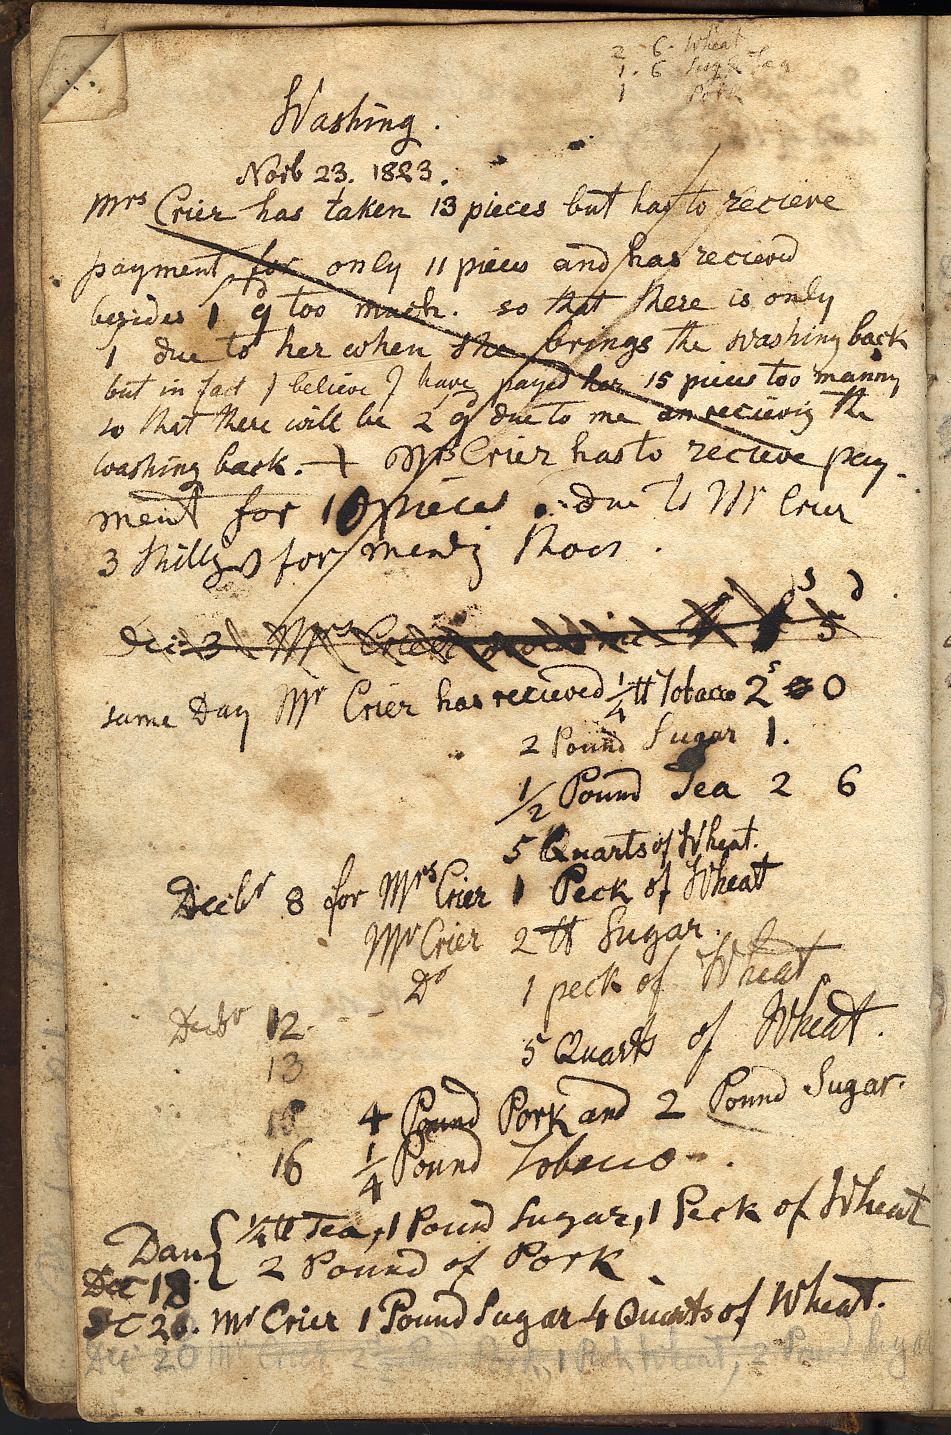 2 6. Wheat
1. 6 Sugar Tea
1 Pork
Washing.
Novb 23. 1823.
Mrs Crier has taken 13 pieces but has to recieve
payment for only 11 pieces and has recieved
besides 1 d too much. so that there is only
1 due to her when she brings the washing back
but in fact I believe I have payed her 15 pieces too manny
so that there will be 2 d due to me on recieving the
washing back. + Mrs Crier has to recieve pay-
ment for 10 pieces. due to Mr Crier
3 Shillgs for mendg Shoes.
Dec 3 Mrs Crier 5
s d
same Day Mr Crier has recieved 1/4 tt Tobacco 2 s 0
2 Pound Sugar 1.
1/2 Pound Tea 2 6
5 Quarts of Wheat.
Decbr 8 for Mrs Crier 1 Peck of Wheat
Mr Crier 2 tt Sugar.
Do 1 peck of Wheat
Decbr 12.
13 5 Quarts of Wheat.
15 4 Pound Pork and 2 Pound Sugar.
16 1/4 Pound Tobacco.
Dan { 1/4 tt Tea, 1 Pound Sugar, 1 Peck of Wheat
Dec 18. 2 Pound of Pork
20. Mr Crier 1 Pound Sugar 4 Quarts of Wheat.
Dec 20 Mr Crier 2 Pork, 1 Peck Wheat, 2 Pound Sugar